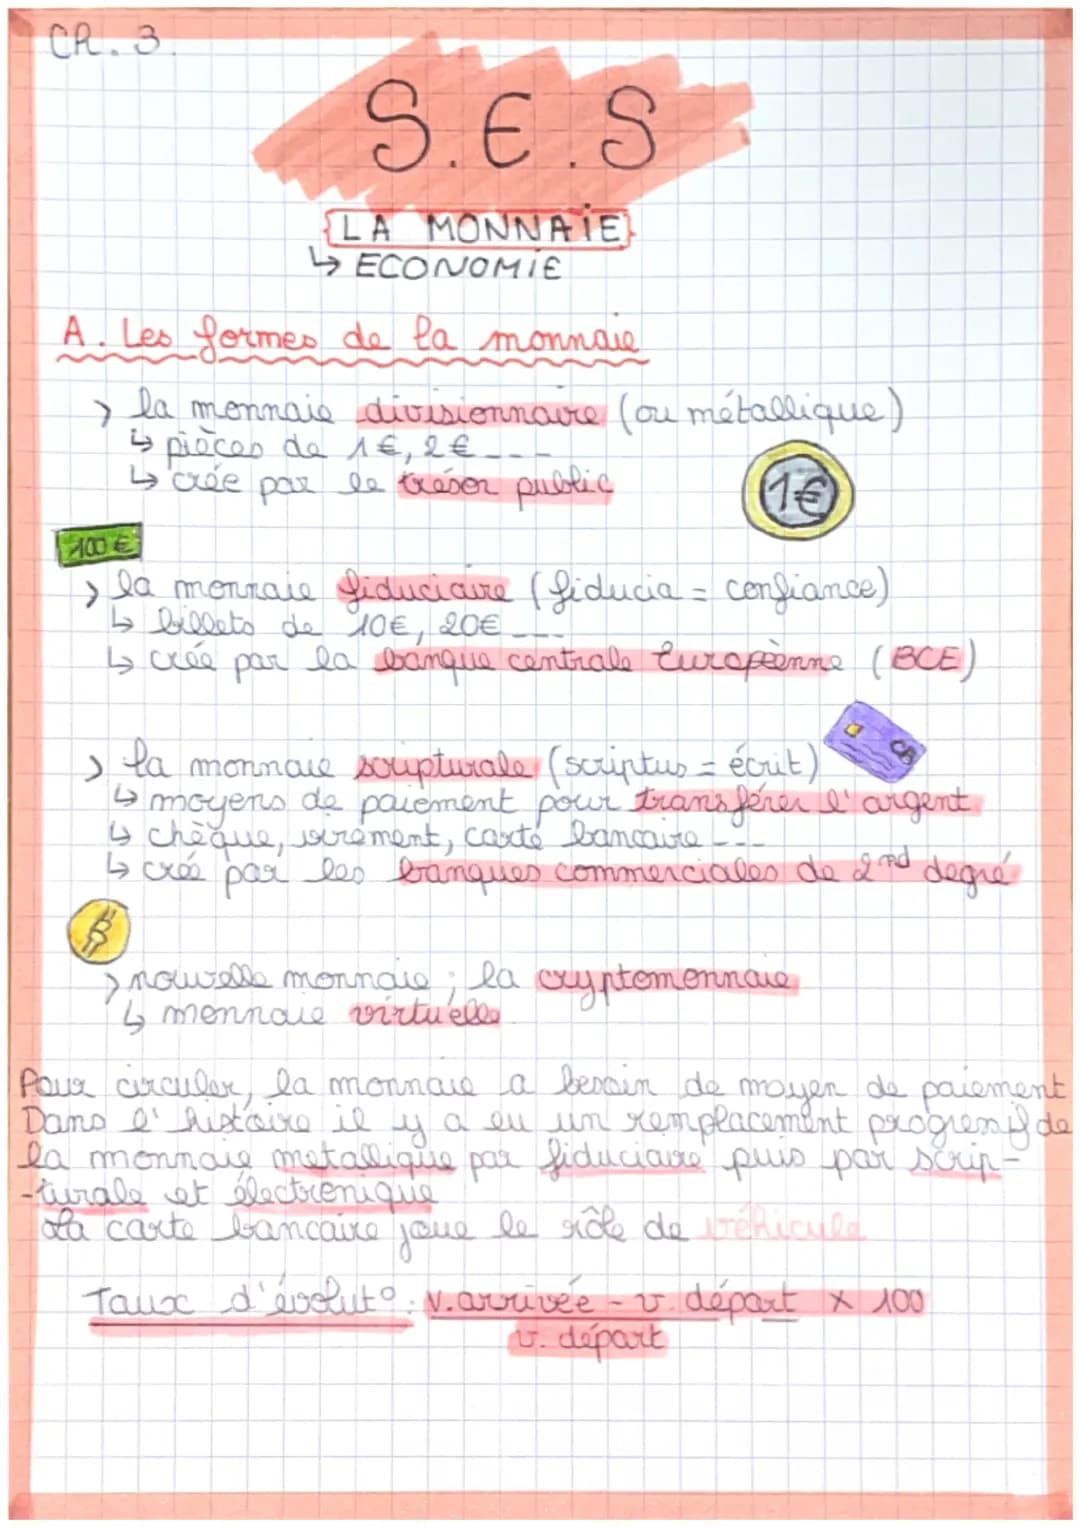 CR. 3.
S.E.S
LA MONNAIE
↳ ECONOMIE
A. Les formes de la monnaie
> la monnaie divisionnaire (ou métallique)
↳ pièces de 1€, 2€ ---
↳ crée par le trésor public
1€
100 €
> la monnaie fiduciaire (fiducia = confiance)
↳ billets de 10€, 20€ ---
↳ créé par la banque centrale Européenne (BCE)
CB
> la monnaie scripturale (scriptus = écrit)
↳ moyens de paiement pour transférer l'argent
↳ chèque, virement, carte bancaire ---
↳ créé par les banques commerciales de 2nd degré
B
> nouvelle monnaie ; la cryptomonnaie
↳ monnaie virtuelle
Pour circuler, la monnaie a besoin de moyen de paiement
Dans l'histoire il y a eu un remplacement progressif de
la monnaie metallique par fiduciaire puis par scrip-
-turale et électronique
La carte bancaire joue le rôle de véhicule
Taux d'évolut°: v.arrivée - v. départ × 100
v. départ